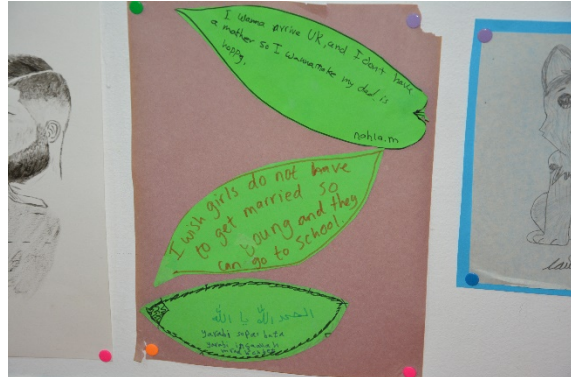 I wanna arrive UK, and I don't have
a mother so I wanna make my dad is
happy.
nahla.m
I wish girls do not have
to get married so
young and they
can go to school.
الحمد لله يا الله
yarabi
yarabi